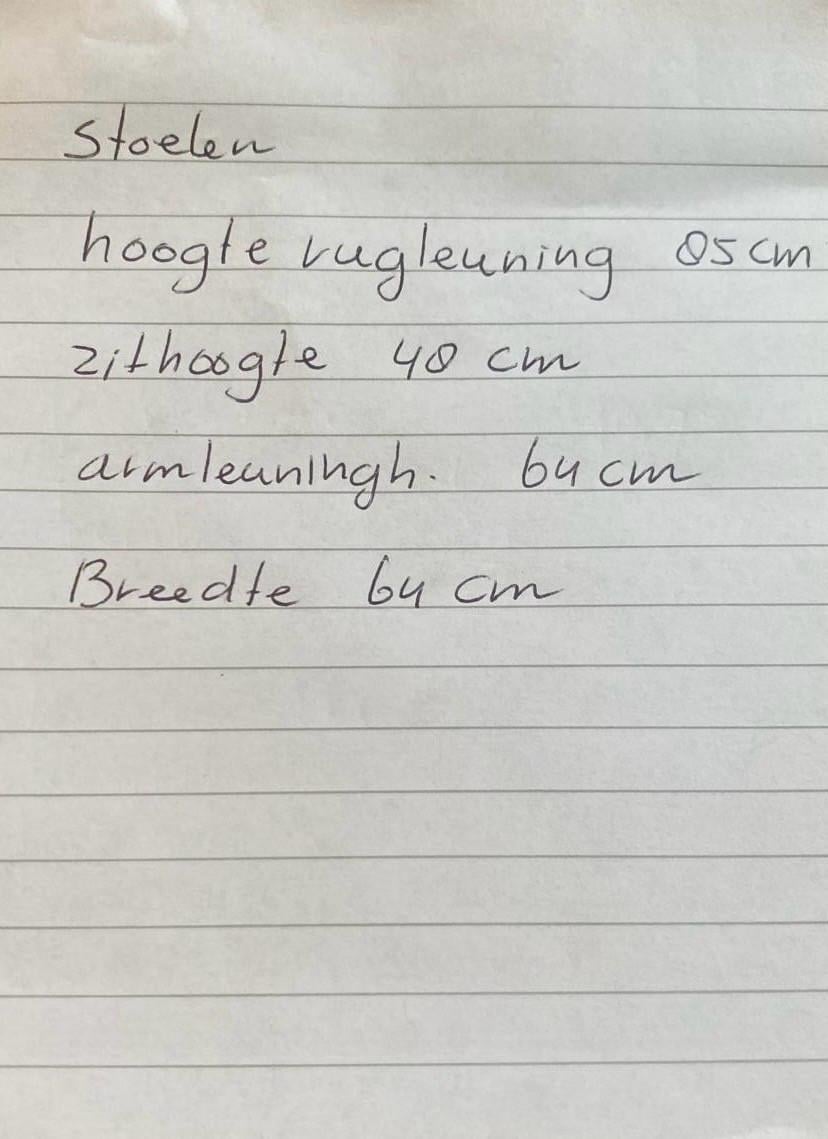 Stoelen
hoogte rugleuning 85 cm
zithoogte 48 cm
armleuningh. 64 cm
Breedte 64 cm